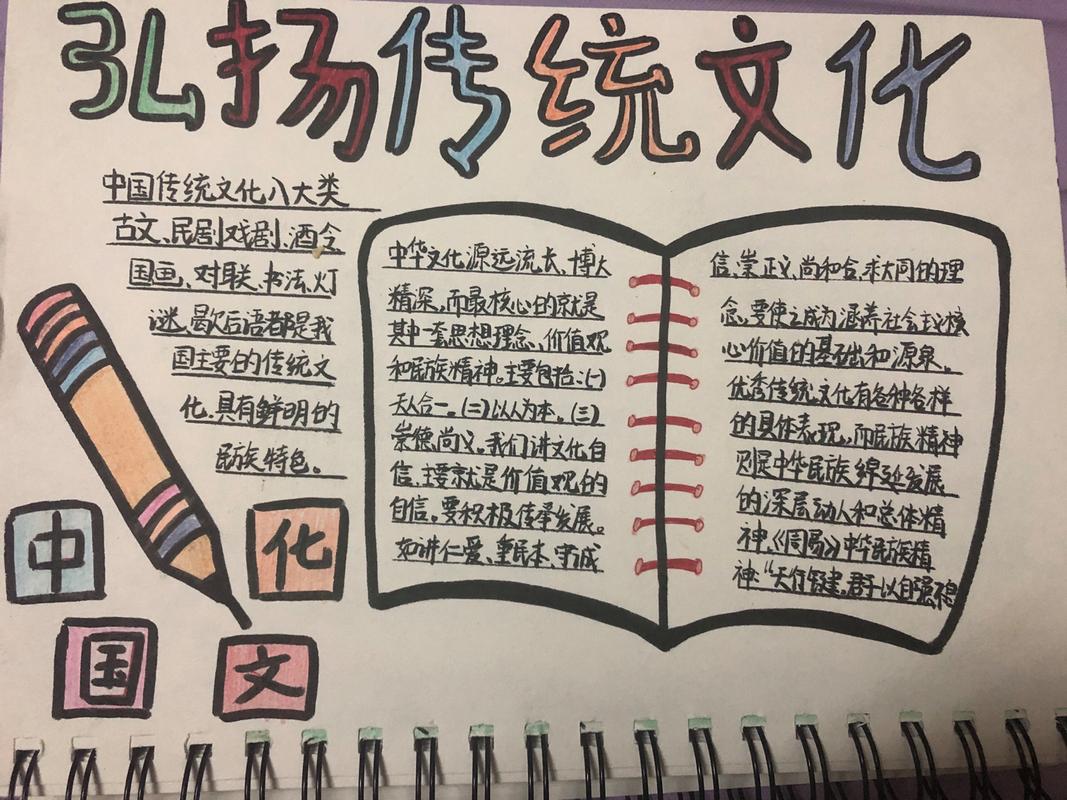 弘扬传统文化
中国传统文化八大类
古文、民剧戏剧、酒令
国画、对联、书法、灯
谜、歇后语都是我
国主要的传统文
化,具有鲜明的
民族特色。
中华文化源远流长、博大
精深,而最核心的就是
其中一套思想理念、价值观
和民族精神。主要包括:(一)
天人合一。(二)以人为本。(三)
崇德尚义。我们讲文化自
信,主要就是价值观的
自信。要积极传承发展。
如讲仁爱、重民本、守诚
信、崇正义、尚和合、求大同的理
念,要使之成为涵养社会主义核
心价值的基础和源泉。
优秀传统文化有各种各样
的具体表现,而民族精神
则是中华民族绵延发展
的深层动人和总体精
神,《周易》中华民族精
神:“天行健,君子以自强不息
中
化
国
文